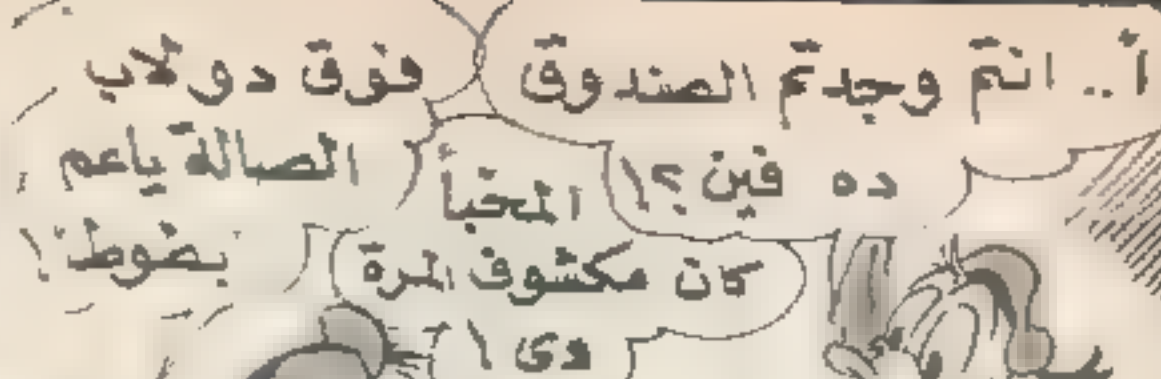 أ.. انتم وجدتم الصندوق
ده فين؟!
فوق دولاب
الصالة ياعم
بطوط!
المخبأ
كان مكشوف المرة
دى!